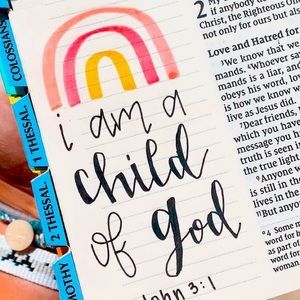 COLOSSIANS
1 THESSAL.
2 THESSAL.
MOTHY
i am a
child
of god
John 3:1
2 My
if anybody
Christ, the Righteous
not only for ours but
Love and Hatred for
We know that we
mands. Whoever
mands is a liar,
obeys his word,
is how we know
live as Jesus did.
Dear friends,
which you have
message you
truth is seen in
the true light
Anyone
is still in the
lives in the
But anyone
4 Some
word for
as part of
word for
woman